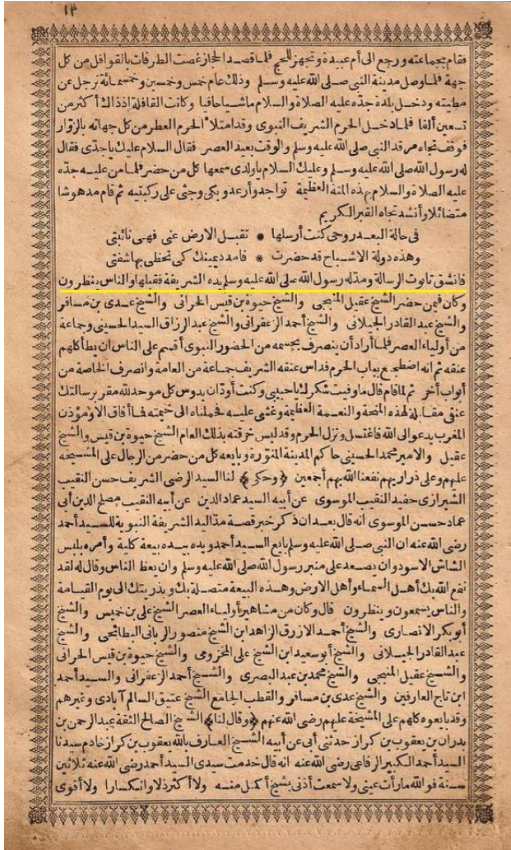 ١٣
فقام بجماعته ورجع الى أم عبيدة وتجهز للحج فلما قصد الحجاز غصت الطرقات بالقوافل من كل
جهة فلما وصل مدينة النبي صلى الله عليه وسلم وذلك عام خمس وخمسين وخمسمائة ترجل عن
مطيته ودخل بلدة جده عليه الصلاة والسلام ماشيا حافيا وكانت القافلة اذ ذاك أكثر من
تسعين ألفا فلما دخل الحرم الشريف النبوى وقد امتلا الحرم العطر من كل جهاته بالزوار
فوقف تجاه مرقد النبي صلى الله عليه وسلم والوقت بعيد العصر فقال السلام عليك يا جدى فقال
له رسول الله صلى الله عليه وسلم وعليك السلام يا ولدى سمعها كل من حضر فلما من عليه جده
عليه الصلاة والسلام بهذه المنة العظيمة تواجد وأرعد وبكى وجثى على ركبتيه ثم قام مدهوشا
متضائلا وأنشد تجاه القبر الكريم
فى حالة البعد روحى كنت أرسلها * تقبل الارض عنى فهى نائبتى
وهذه دولة الاشباح قد حضرت * فامدد يمينك كى تحظى بها شفتى
فانشق تابوت الرسالة ومد له رسول الله صلى الله عليه وسلم يده الشريفة فقبلها والناس ينظرون
وكان فيمن حضر الشيخ عقيل المنبجى والشيخ حيوة بن قيس الحرانى والشيخ عدى بن مسافر
والشيخ عبد القادر الجيلانى والشيخ أحمد الزعفرانى والشيخ عبد الرزاق السيد الحسينى وجماعة
من أولياء العصر فلما أراد أن ينصرف بجسمه من الحضور النبوى أقسم على الناس ان يطأ كلهم
عنقه ثم انه اضطجع بباب الحرم فداس عنقه الشريف جماعة من العامة وانصرف الخاصة من
أبواب أخر ثم لما قام قال ما وفيت شكرك يا حبيبى وكنت أود أن يدوس كل موحد لله مقر برسالتك
عنقى مقابلة لهذه المنحة والنعمة العظيمة وغشى عليه فحملناه الى خيمته فما أفاق الا ومؤذن
المغرب يدعو الى الله فاغتسل ونزل الحرم وقد لبس خرقته بذلك العام الشيخ حيوة بن قيس والشيخ
عقيل والامير محمد الحسينى حاكم المدينة المنورة وبايعه كل من حضر من الرجال على المشيخة
عليهم وعلى ذراريهم نفعنا الله بهم أجمعين ﴿وحكى﴾ لنا السيد الرضى الشريف حسن النقيب
الشيرازى حفيد النقيب الموسوى عن أبيه السيد عماد الدين عن أبيه النقيب مصلح الدين أبى
عماد حسن الموسوى انه قال بعد ان ذكر خبر قصة مد اليد الشريفة النبوية للسيد أحمد
رضى الله عنه ان النبى صلى الله عليه وسلم بايع السيد أحمد ويده بيده بيعة كلية وأمره بلبس
الشاش الاسود وان يصعد على منبر رسول الله صلى الله عليه وسلم وان يعظ الناس وقال له لقد
نفع الله بك أهل السماء وأهل الارض وهذه البيعة متصلة بك وبذريتك الى يوم القيامة
والناس يسمعون وينظرون قال وكان من مشاهير أولياء العصر الشيخ على بن خميس والشيخ
أبو بكر الانصارى والشيخ أحمد الازرق الزاهد ابن الشيخ منصور الربانى البطائحى والشيخ
عبد القادر الجيلانى والشيخ أبو سعيد ابن الشيخ على المخزومى والشيخ حيوة بن قيس الحرانى
والشيخ عقيل المنبجى والشيخ محمد بن عبد البصرى والشيخ أحمد الزعفرانى والسيد أحمد
ابن تاج العارفين والشيخ عدى بن مسافر والقطب الجامع الشيخ عتيق السالم آبادى وغيرهم
وقد بايعوه كلهم على المشيخة عليهم رضى الله عنهم ﴿وقال لنا﴾ الشيخ الصالح الثقة عبد الرحمن بن
بدران بن يعقوب بن كراز حدثنى أبى عن أبيه الشيخ العارف بالله يعقوب بن كراز خادم سيدنا
السيد أحمد الكبير الرفاعى رضى الله عنه انه قال خدمت سيدى السيد أحمد رضى الله عنه ثلاثين
سنة فو الله ما رأت عينى ولا سمعت أذنى بشيخ أكمل منه ولا أكثر ذلا وانكسارا ولا أقوى